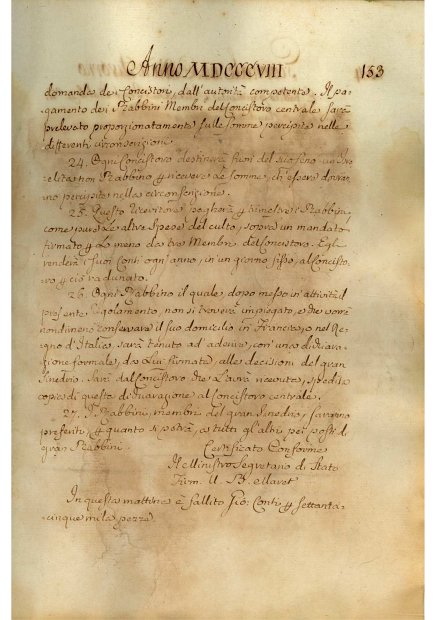 Anno MDCCCVIII 153
domanda dei Concistori, dall'autorità competente. Il pa-
gamento dei Rabbini Membri del Concistoro centrale sarà
prelevato proporzionatamente sulle somme percepite nelle
differenti circonscrizioni.
24. Ogni Concistoro destinerà fuori del suo seno un Isra-
elita non Rabbino ꝑ ricevere le somme, ch'essere dovran-
no percepite nella circonscrizione.
25. Questo Ricevitore pagherà ꝑ trimestre i Rabbini,
come pure le altre spese del culto, sopra un mandato
firmato ꝑ lo meno da tre Membri del Concistoro. Egli
renderà i suoi conti ogni anno, in un giorno fisso, al Concisto-
ro ꝑ ciò radunato.
26. Ogni Rabbino il quale, dopo messo in attività il
presente Regolamento, non si troverà impiegato, e che vorrà
nondimeno conservare il suo domicilio in Francia, o nel Re-
gno d'Italia, sarà tenuto ad aderire, con una dichiara-
zione formale, da lui firmata, alle decisioni del gran
Sinedrio. Sarà dal Concistoro che l'avrà ricevuta, spedita
copia di questa dichiarazione al Concistoro centrale.
27. I Rabbini, membri del gran Sinedrio, saranno
preferiti, ꝑ quanto si potrà, a tutti gli altri pei posti di
gran Rabbini.
Certificato Conforme
Il Ministro Segretario di Stato
Firm.
In questa mattina è fallito Gio: Conti ꝑ settanta-
cinque mila pezze.